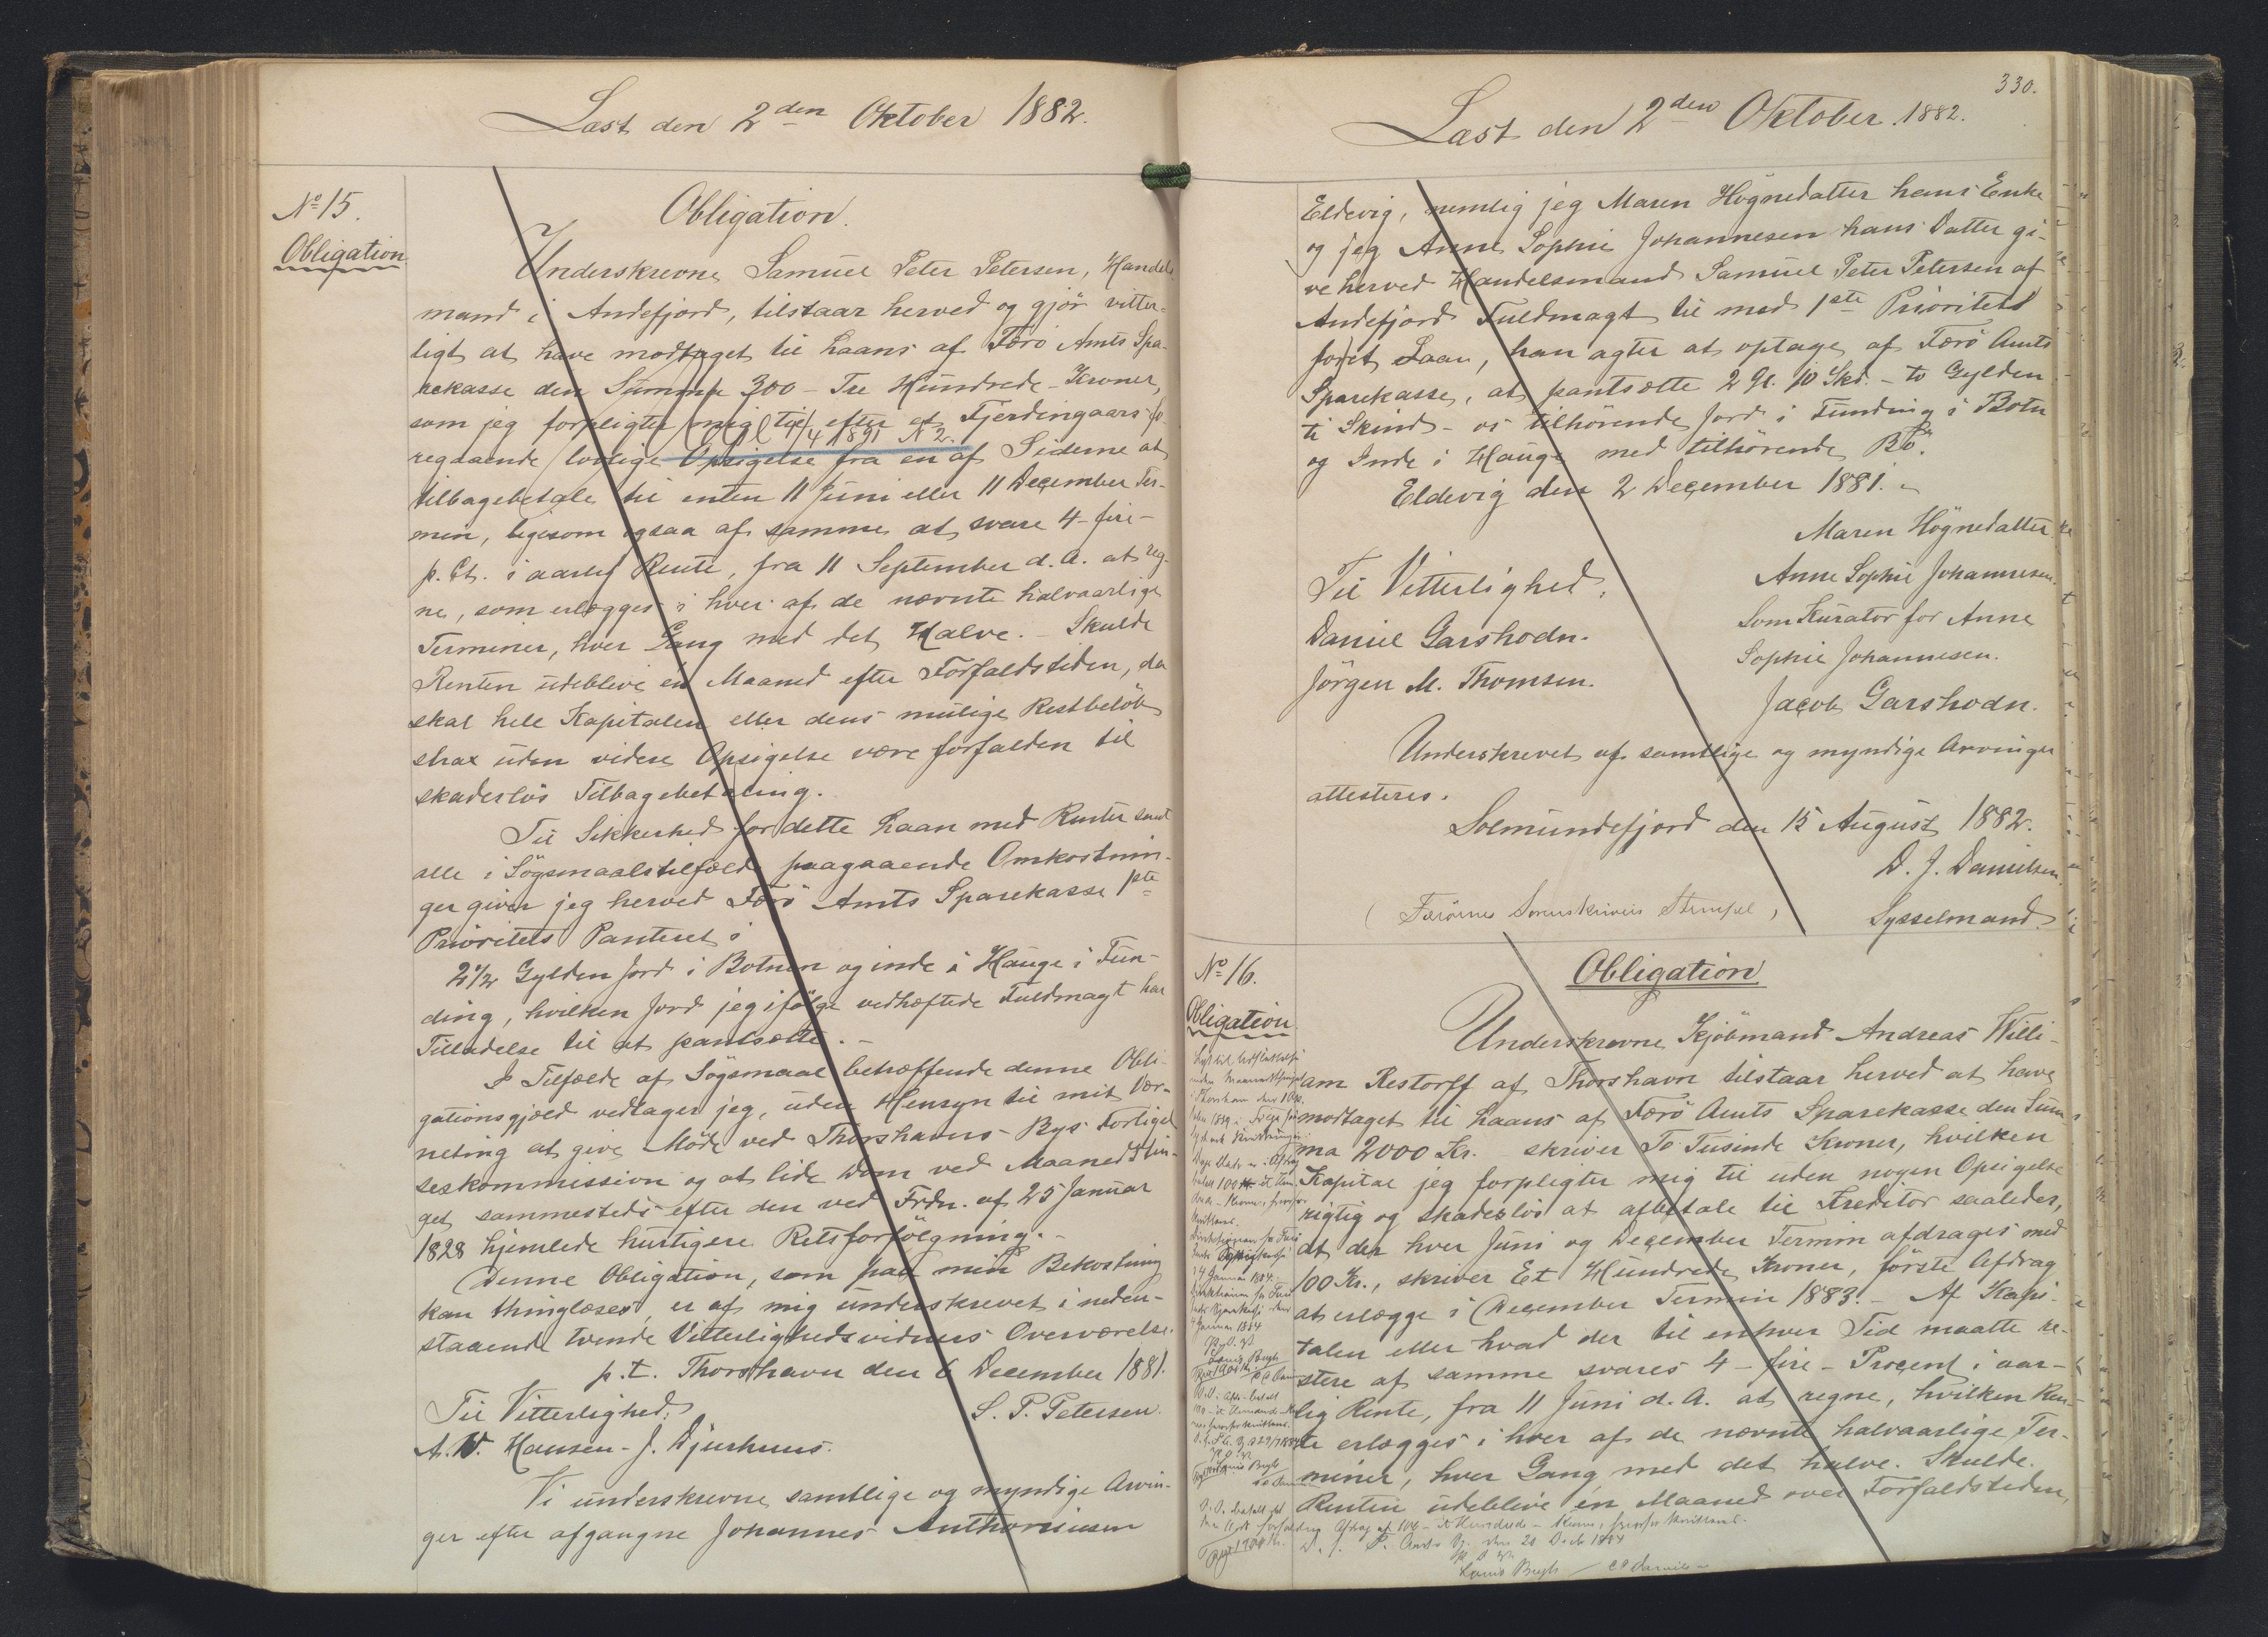 Læst den 2den Oktober 1882.
No 15.
Obligation
Obligation.
Underskrevne Samuel Peter Petersen, Handels
mand i Andefjord, tilstaar herved og gjör vitter-
ligt at have modtaget til Laans af Færö Amts Spa-
rekasse den Summa 300 - Tre Hundrede - Kroner,
som jeg forpligter mig til efter et Fjerdingaars fo-
regaaende lovlige Opsigelse fra en af Siderne at
tilbagebetale til enten 11 Juni eller 11 December Ter-
min, ligesom ogsaa af samme at svare 4 - fire -
p. Ct. i aarlig Rente, fra 11 September d. A. at reg-
ne, som erlægges i hver af de nævnte halvaarlige
Terminer, hver Gang med det Halve. - Skulde
Renten udeblive en Maaned efter Forfaldstiden, da
skal hele Kapitalen eller dens mulige Restbelöb
strax uden videre Opsigelse være forfalden til
skadeslös Tilbagebetaling.
Til Sikkerhed for dette Laan med Renter samt
alle i Sögsmaalstilfælde paagaaende Omkostnin-
ger giver jeg herved Færö Amts Sparekasse 1ste
Prioritets Panteret i
2 1/2 Gylden Jord i Botnen og inde i Hauge i Fun-
ding, hvilken Jord jeg ifölge vedhæftede Fuldmagt har
Tilladelse til at pantsætte. -
I Tilfælde af Sögsmaal betræffende denne Obli-
gationsgjæld vedtager jeg, uden Hensyn til mit Vær-
neting at give Möde ved Thorshavns Bys Forligel-
seskommission og at lide Dom ved Maanedsthin-
get sammesteds efter den ved Frdn. af 25 Januar
1828 hjemlede hurtigere Retsforfölgning. -
Denne Obligation, som paa min Bekostning
kan thinglæses, er af mig underskrevet i neden-
staaende tvende Vitterlighedsvidners Overværelse.
p.t. Thorshavn den 6 December 1881.
Til Vitterlighed:
S. P. Petersen.
A. W. Hansen - J. Djurhuus.
Vi underskrevne samtlige og myndige Arvin-
ger efter afgangne Johannes Anthoniusen
330.
Læst den 2den Oktober 1882.
Eldevig, nemlig jeg Maren Högnedatter hans Enke
og jeg Anne Sophie Johannesen hans Datter gi-
ve herved Handelsmand Samuel Peter Petersen af
Andefjord Fuldmagt til med 1ste Prioritet
for et Laan, han agter at optage af Færö Amts
Sparekasse, at pantsætte 2 Gl. 10 Skd. - to Gylden
ti Skind - os tilhörende Jord i Funding i Botn
og Inde i Hauge med tilhörende Bö.
Eldevig den 2 December 1881.
Maren Högnedatter
Anne Sophie Johannesen.
Til Vitterlighed:
Som Kurator for Anne
Sophie Johannesen.
Daniel Garshodn.
Jörgen M. Thomsen.
Jacob Garshodn.
Underskrevet af samtlige og myndige Arvinger
attesteres.
Solmundefjord den 15 August 1882.
D. J. Danielsen.
Sysselmand.
(Færöernes Sorenskriveris Stempel)
No 16.
Obligation
Obligation
Underskrevne Kjöbmand Andreas Willi-
am Restorff af Thorshavn tilstaar herved at have
modtaget til Laans af Færö Amts Sparekasse den Sum-
ma 2000 Kr. skriver To Tusinde Kroner, hvilken
Kapital jeg forpligter mig til uden nogen Opsigelse
rigtig og skadeslös at afbetale til Kreditor saaledes,
at der hver Juni og December Termin afdrages med
100 Kr., skriver Et Hundrede Kroner, förste Afdrag
at erlægge i December Termin 1883. - Af Kapi-
talen eller hvad der til enhver Tid maatte re-
stere af samme svares 4 - fire - Procent i aar-
lig Rente, fra 11 Juni d. A. at regne, hvilken Ren-
te erlægges i hver af de nævnte halvaarlige Ter-
miner, hver Gang med det halve. Skulde
Renten udeblive en Maaned over Forfaldstiden,